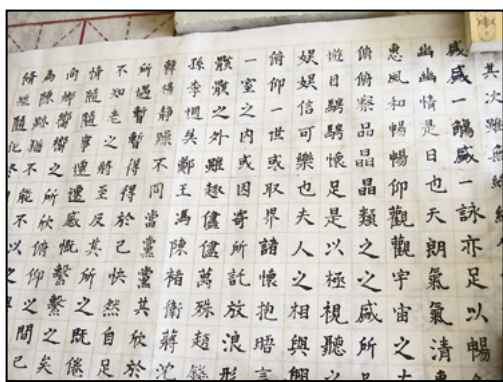 其次雖無絲
盛盛一觴盛一詠亦足以暢
幽幽情是日也天朗氣氣清
惠風和暢暢仰觀觀宇宙之
俯俯察品晶晶類之之盛所
遊目騁騁懷足是以極視聽
娛娛信可樂也夫人之相與
俯仰一世或取界諸懷抱晤言
一室之内或因寄所託放浪形
骸骸之之外雖趣儘儘萬殊趙
孫李周吳鄭王馮陳褚衛蔣沈
韓靜躁不同當黨黨其欣於
所遇暫暫得得於己快然自足
不知老之將至反其所之既倦
情隨隨事遷遷感慨繫繫之矣
向鄉嚮之所欣俯仰之間已
為陳跡猶不能不以之
脩短隨化